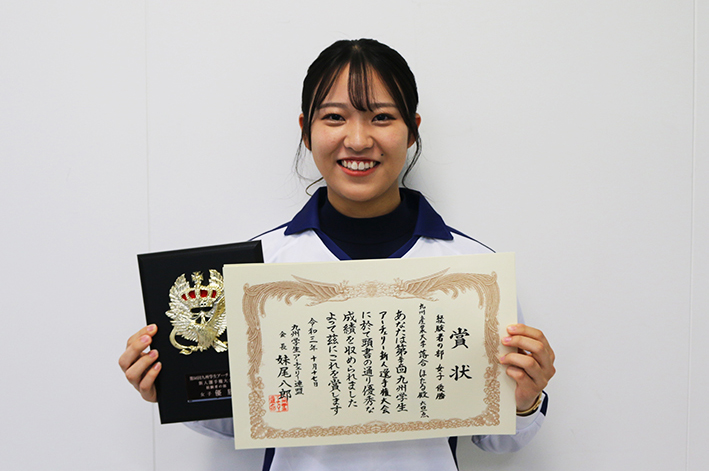 賞状
経験者の部 女子 優勝
九州産業大学 落合ほたる殿
あなたは第 九州学生
アーチェリー新人選手権大会
に於て頭書の通り優秀な
成績を収められました
よって茲にこれを賞します
令和三年十月十七日
九州学生アーチェリー連盟
会長 妹尾八郎
九州学生アーチ
新人選手権大
女子 優